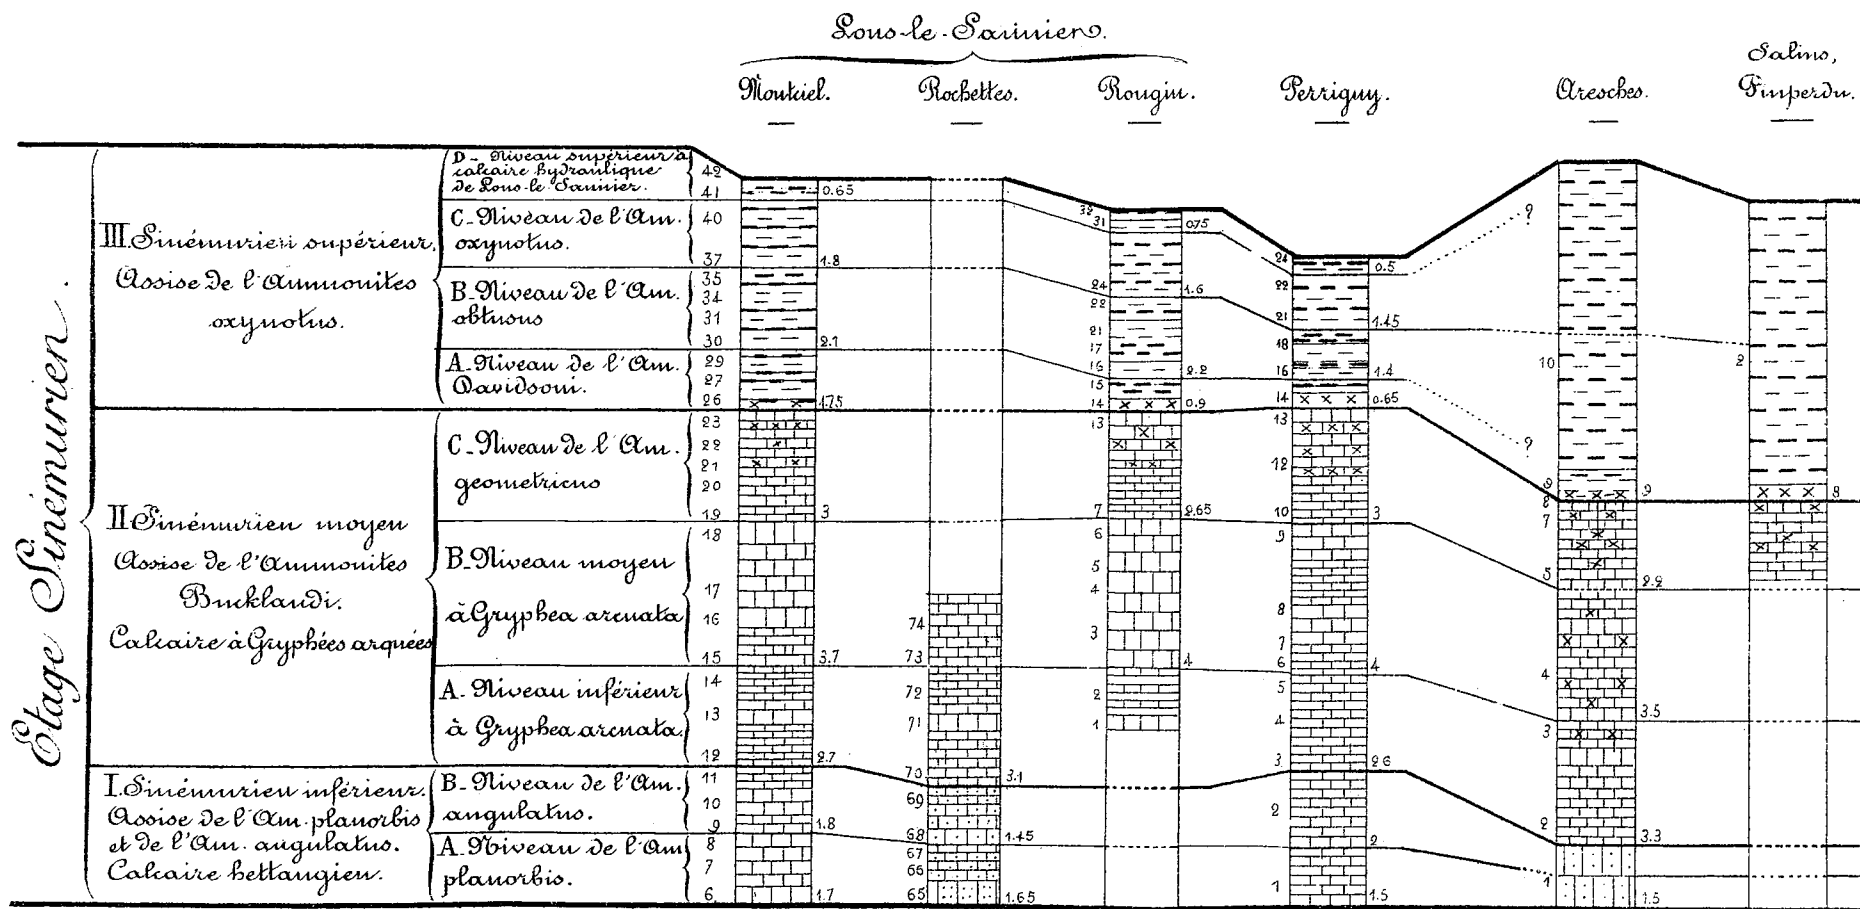 Lons-le-Saunier.
Salins,
Montciel.
Rochettes.
Rougin.
Perrigny.
Aresches.
Pinperdu.
Etage Sinémurien.
III. Sinémurien supérieur.
Assise de l'Ammonites
oxynotus.
D - Niveau supérieur à
calcaire hydraulique
de Lons-le-Saunier.
C - Niveau de l'Am.
oxynotus.
B - Niveau de l'Am.
obtusus
A. Niveau de l'Am.
Davidsoni.
II. Sinémurien moyen
Assise de l'Ammonites
Bucklandi.
Calcaire à Gryphées arquées
C - Niveau de l'Am.
geometricus
B - Niveau moyen
à Gryphea arcuata
A - Niveau inférieur
à Gryphea arcuata.
I. Sinémurien inférieur.
Assise de l'Am. planorbis
et de l'Am. angulatus.
Calcaire hettangien.
B - Niveau de l'Am.
angulatus.
A. Niveau de l'Am
planorbis.
42
41
40
37
35
34
31
30
29
27
26
23
22
21
20
19
18
17
16
15
14
13
12
11
10
9
8
7
6.
0.65
1.8
2.1
1.75
3
3.7
2.7
1.8
1.7
74
73
72
71
70
69
68
67
66
65
3.1
1.45
1.65
32
31
24
22
21
17
16
15
14
13
7
6
5
4
3
2
1
0.75
1.6
2.2
0.9
2.65
4
24
22
21
18
16
14
13
12
10
9
8
7
6
5
4
3
2
1
0.5
1.45
1.4
0.65
3
4
2.6
2
1.5
?
?
10
9
8
7
5
4
3
2
1
9
2.2
3.5
3.3
1.5
2
8